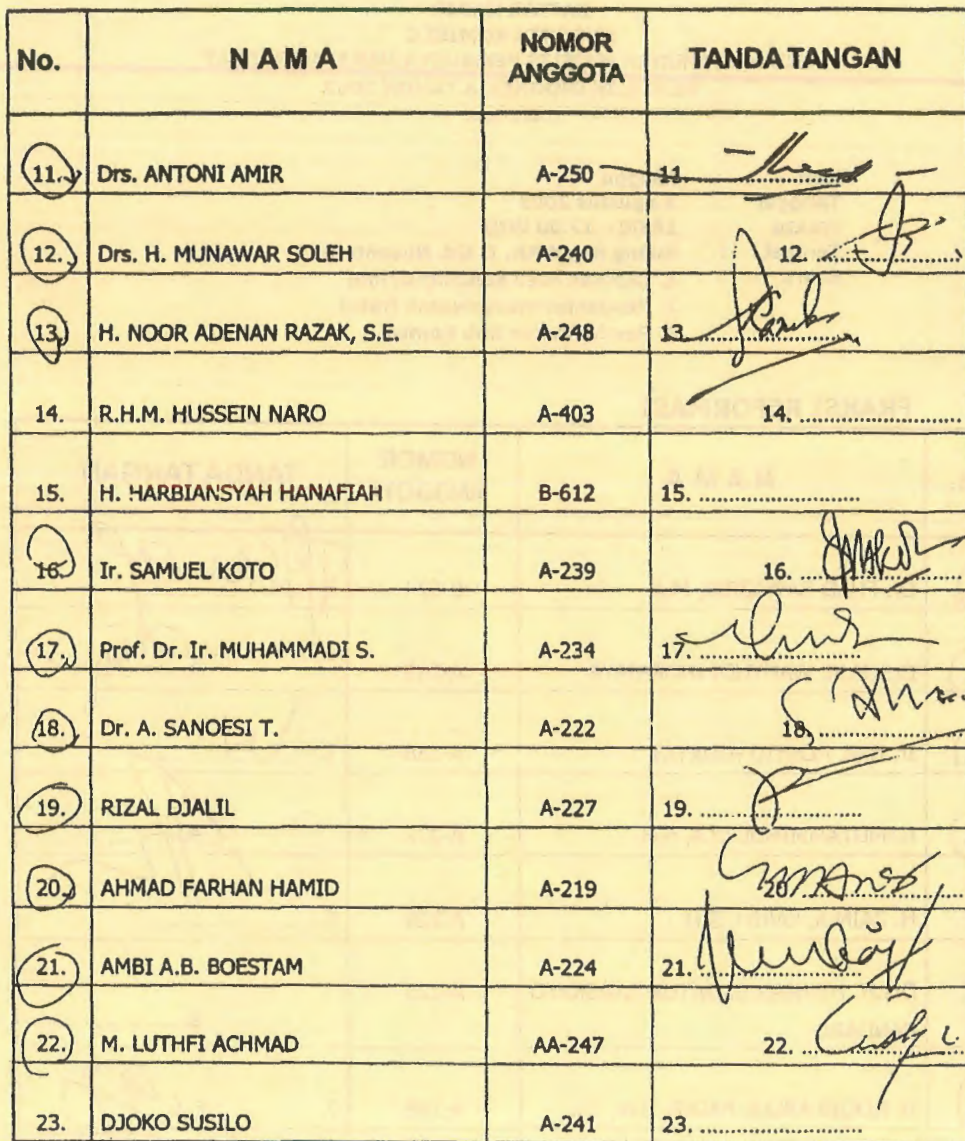 No. N A M A NOMOR ANGGOTA TANDA TANGAN
11. Drs. ANTONI AMIR A-250 11. ....................
12. Drs. H. MUNAWAR SOLEH A-240 12. ....................
13. H. NOOR ADENAN RAZAK, S.E. A-248 13. ....................
14. R.H.M. HUSSEIN NARO A-403 14. ....................
15. H. HARBIANSYAH HANAFIAH B-612 15. ....................
16. Ir. SAMUEL KOTO A-239 16. ....................
17. Prof. Dr. Ir. MUHAMMADI S. A-234 17. ....................
18. Dr. A. SANOESI T. A-222 18. ....................
19. RIZAL DJALIL A-227 19. ....................
20. AHMAD FARHAN HAMID A-219 20. ....................
21. AMBI A.B. BOESTAM A-224 21. ....................
22. M. LUTHFI ACHMAD AA-247 22. ....................
23. DJOKO SUSILO A-241 23. ....................